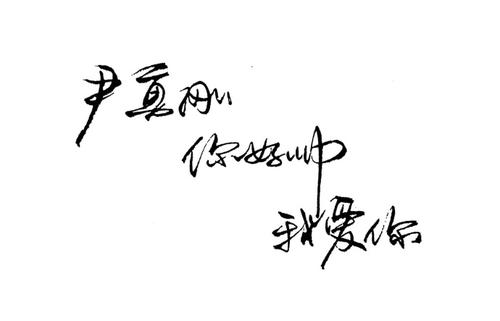 尹真刚
你好帅
我爱你